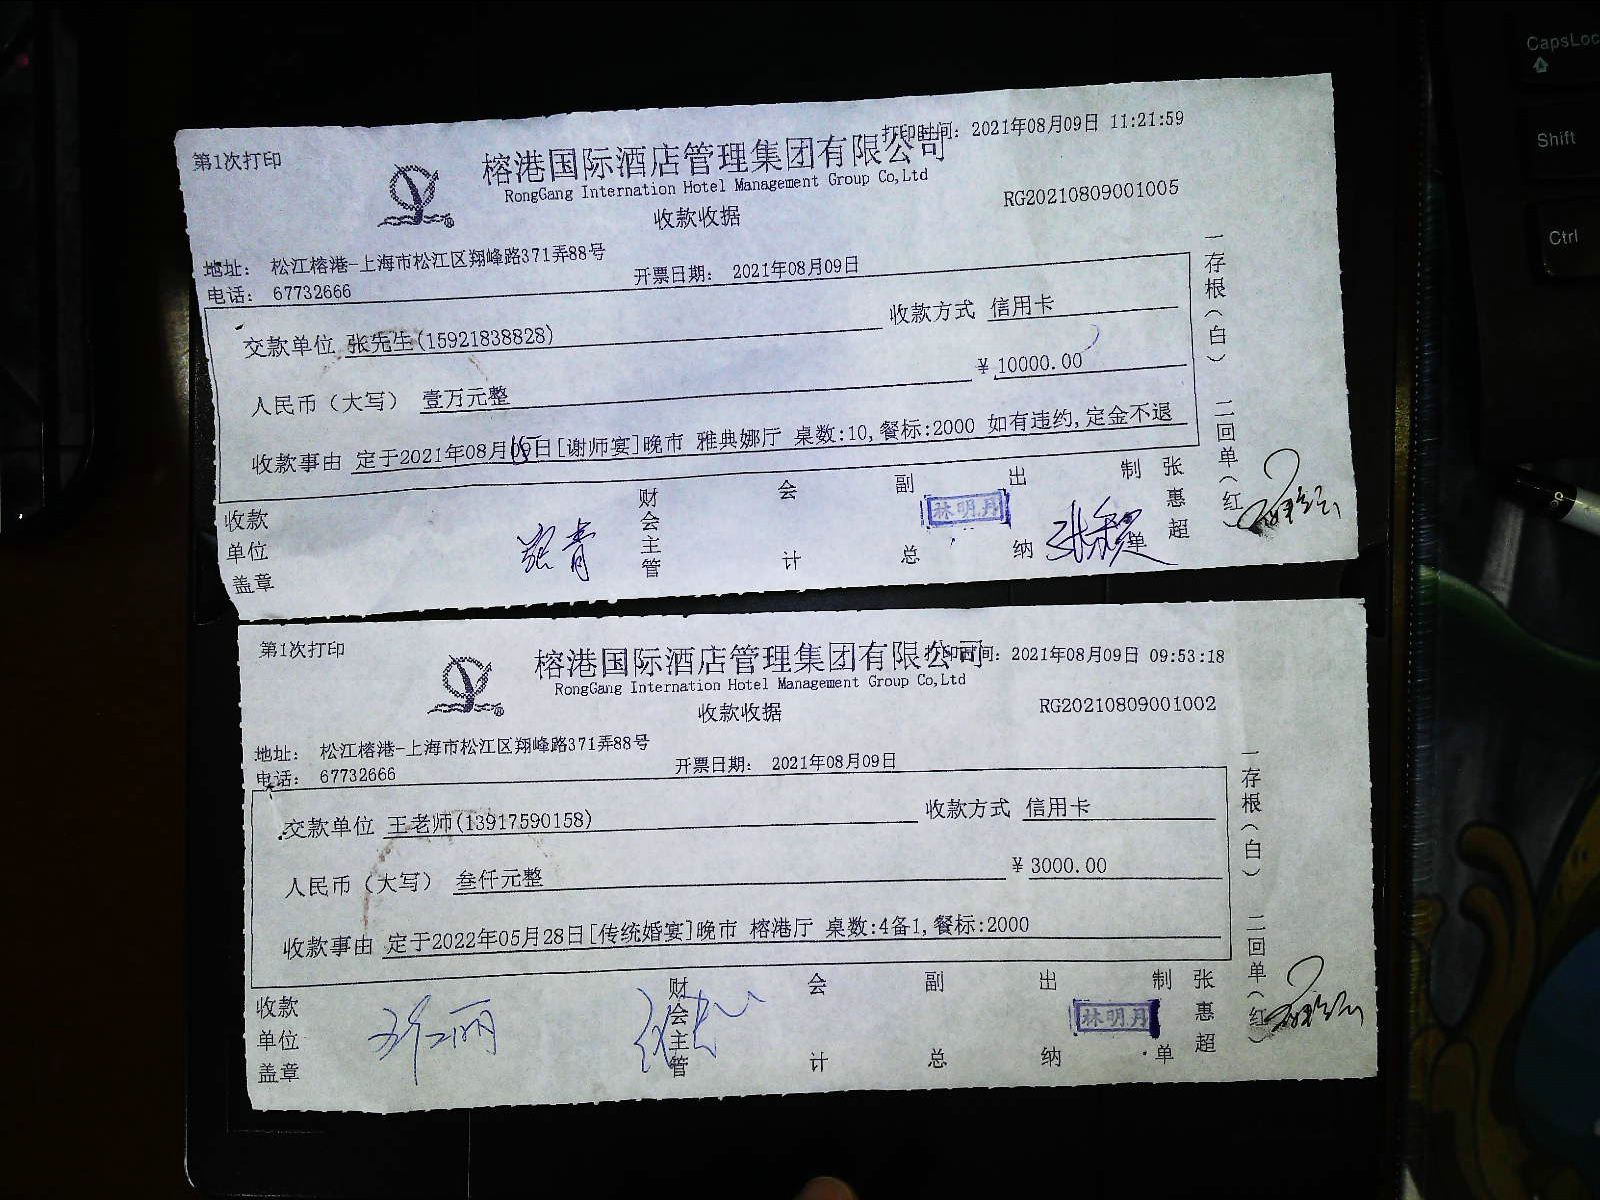 第1次打印
打印时间: 2021年08月09日 11:21:59
榕港国际酒店管理集团有限公司
RongGang Internation Hotel Management Group Co,Ltd
收款收据
RG20210809001005
地址: 松江榕港-上海市松江区翔峰路371弄88号
电话: 67732666
开票日期: 2021年08月09日
交款单位 张先生(15921838828)
收款方式 信用卡
人民币（大写） 壹万元整
¥ 10000.00
收款事由 定于2021年08月15日[谢师宴]晚市 雅典娜厅 桌数:10,餐标:2000 如有违约,定金不退
收款单位盖章
财会主管
会计
副总
林明月
出纳
制单
张惠超
一存根(白) 二回单(红)
第1次打印
打印时间: 2021年08月09日 09:53:18
榕港国际酒店管理集团有限公司
RongGang Internation Hotel Management Group Co,Ltd
收款收据
RG20210809001002
地址: 松江榕港-上海市松江区翔峰路371弄88号
电话: 67732666
开票日期: 2021年08月09日
交款单位 王老师(13917590158)
收款方式 信用卡
人民币（大写） 叁仟元整
¥ 3000.00
收款事由 定于2022年05月28日[传统婚宴]晚市 榕港厅 桌数:4备1,餐标:2000
收款单位盖章
财会主管
会计
副总
出纳
林明月
制单
张惠超
一存根(白) 二回单(红)
CapsLoc
Shift
Ctrl